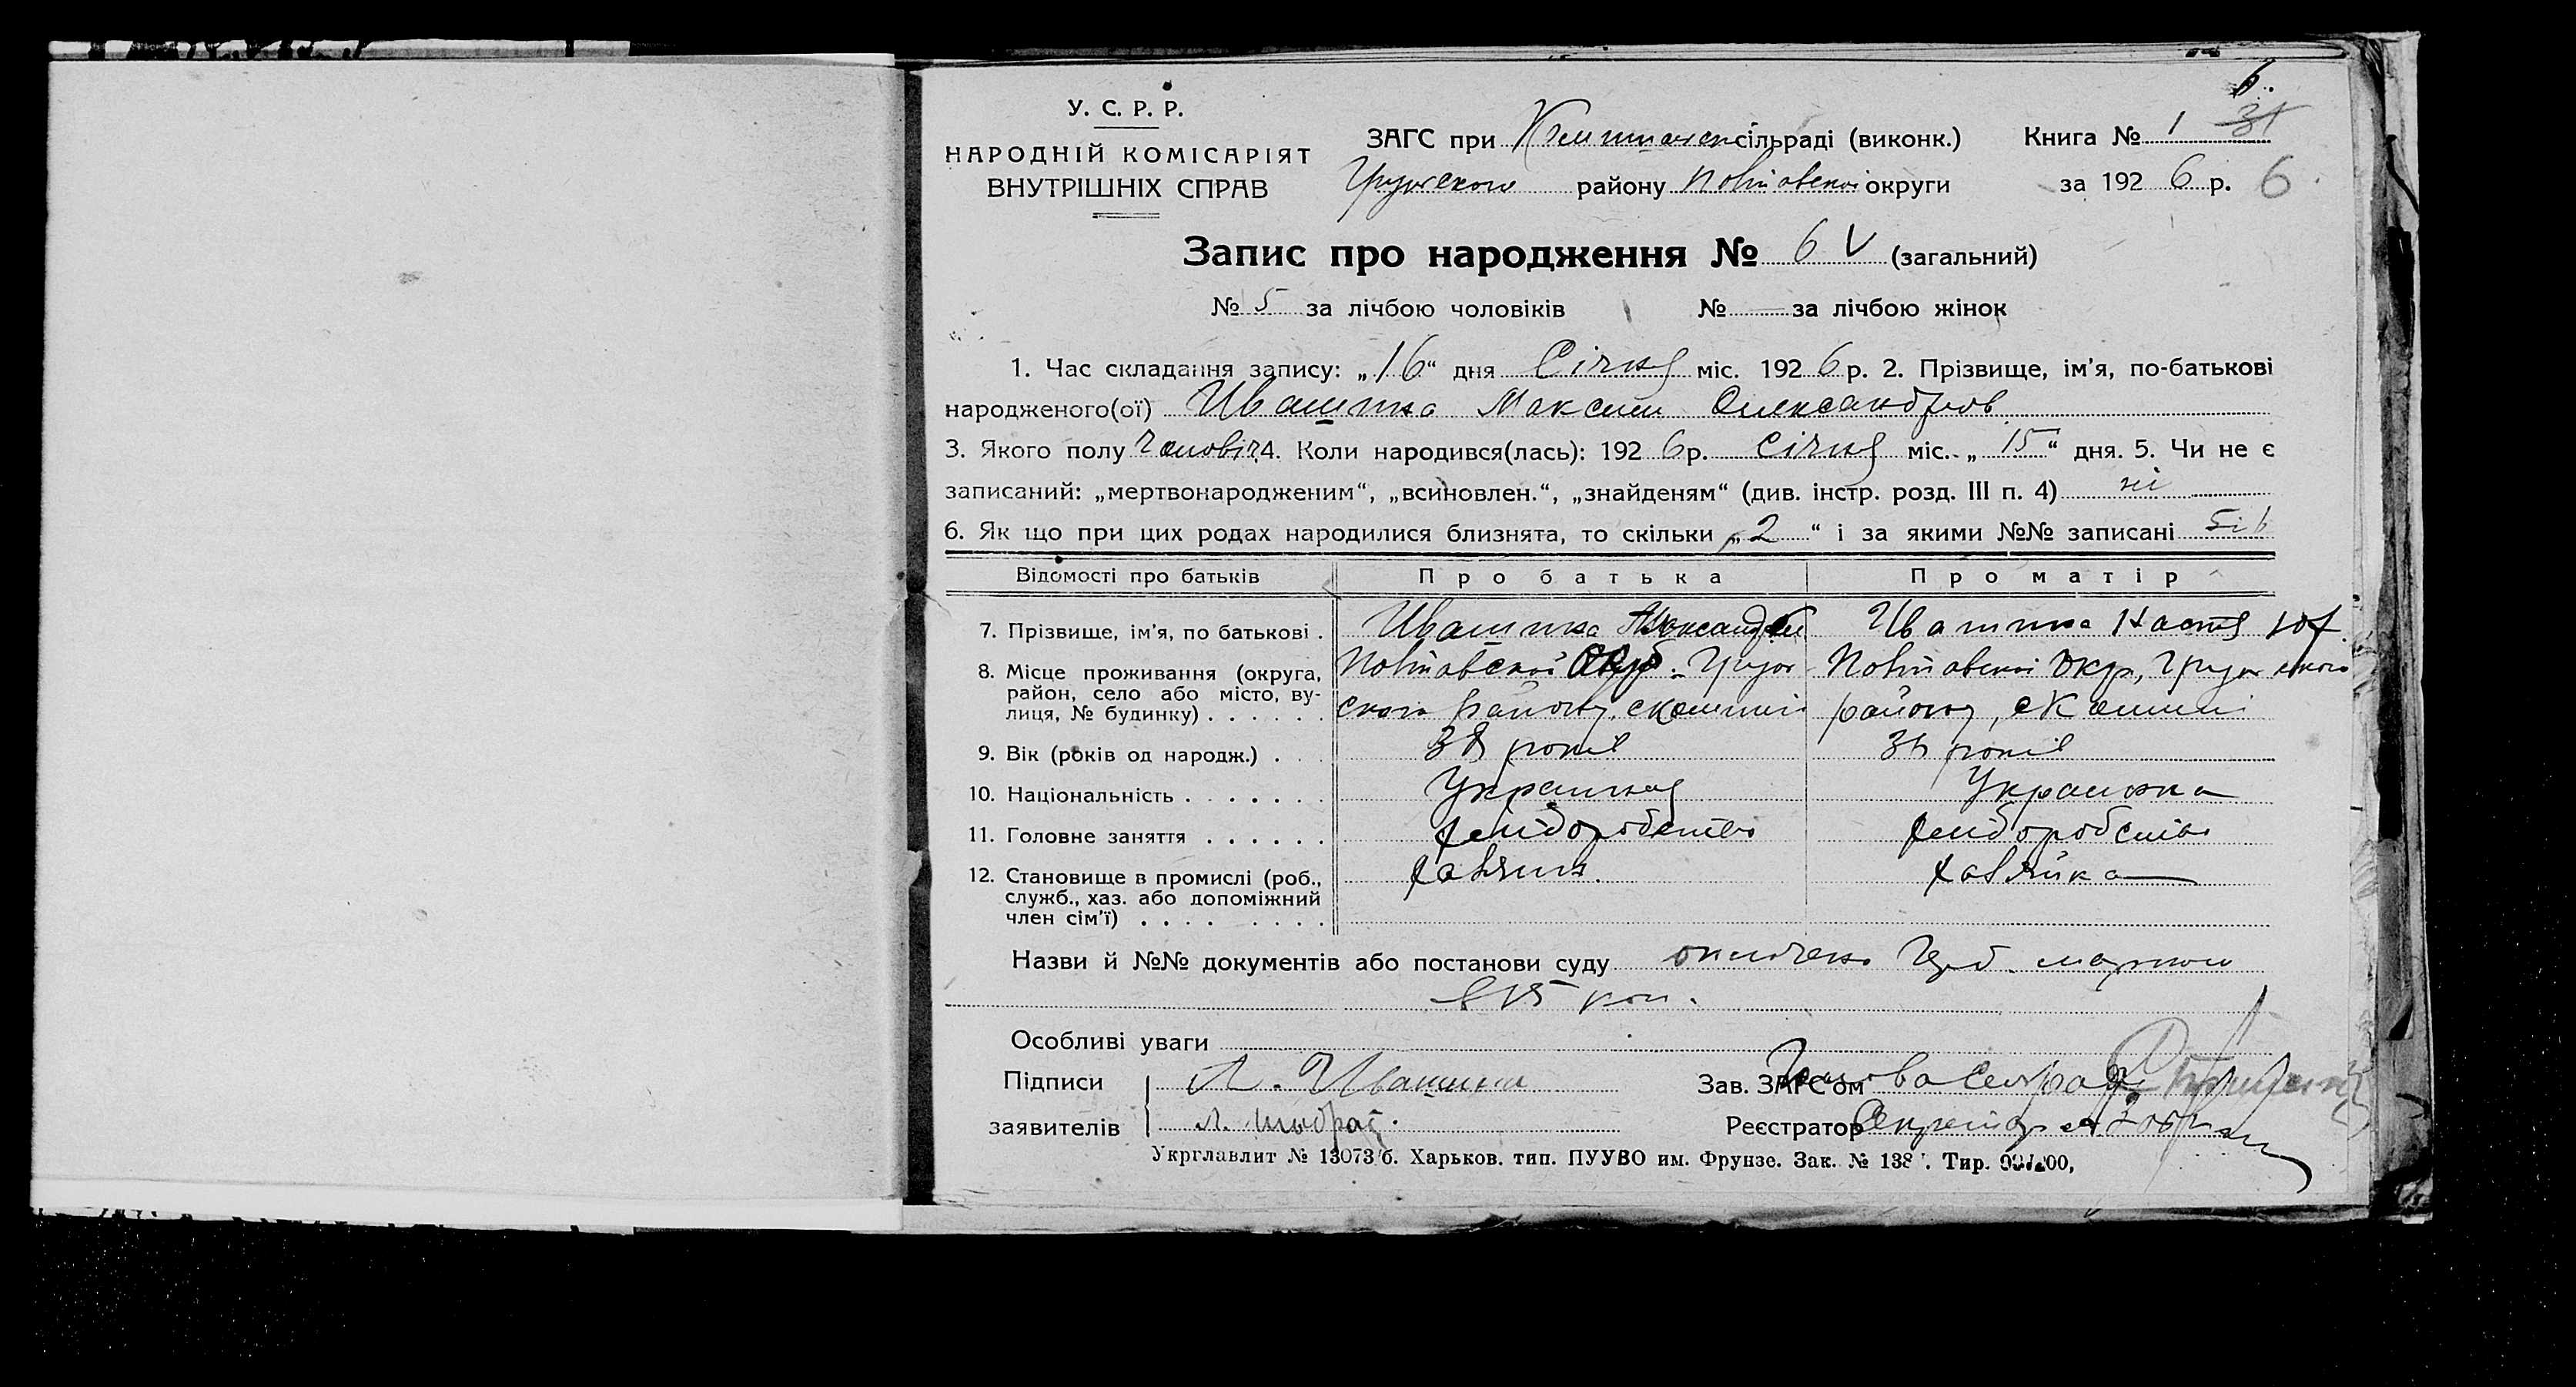 6.
У. С. Р. Р.
НАРОДНІЙ КОМІСАРІЯТ
ВНУТРІШНІХ СПРАВ
ЗАГС при сільраді (виконк.) Книга № 1 31
району Полтавскої округи за 192 6 р. 6
Запис про народження № 6 V (загальний)
№ 5 за лічбою чоловіків № — за лічбою жінок
1. Час складання запису: „16“ дня Січня міс. 192 6 р. 2. Прізвище, ім'я, по-батькові
народженого(ої) Ивашина Максим Олександров
3. Якого полу чоловіч. 4. Коли народився(лась): 192 6 р. Січня міс. „15“ дня. 5. Чи не є
записаний: „мертвонародженим“, „всиновлен.“, „знайденям“ (див. інстр. розд. III п. 4) ні
6. Як що при цих родах народилися близнята, то скільки „2“ і за якими №№ записані 5 і 6
Відомості про батьків Про батька Про матір
7. Прізвище, ім'я, по батькові . Ивашина Ивашина Настя
8. Місце проживання (округа, район, село або місто, вулиця, № будинку) . . . . . . Полтавскої Полтавскої Окр,
району, району,
9. Вік (років од народж.) . . . 38 років років
10. Національність . . . . . . . Українец Українка
11. Головне заняття . . . . . . хліборобство хліборобство
12. Становище в промислі (роб., служб., хаз. або допоміжний член сім'ї) . . . . . . . . хазяін. хазяйка
Назви й №№ документів або постанови суду оплочено Герб. маркою
в 15 коп.
Особливі уваги
Підписи Ивашина Зав. ЗАГС'ом Голова Сельради
заявителів Реєстратор Секретар
Укрглавлит № 13073/б. Харьков. тип. ПУУВО им. Фрунзе. Зак. № 138 . Тир.